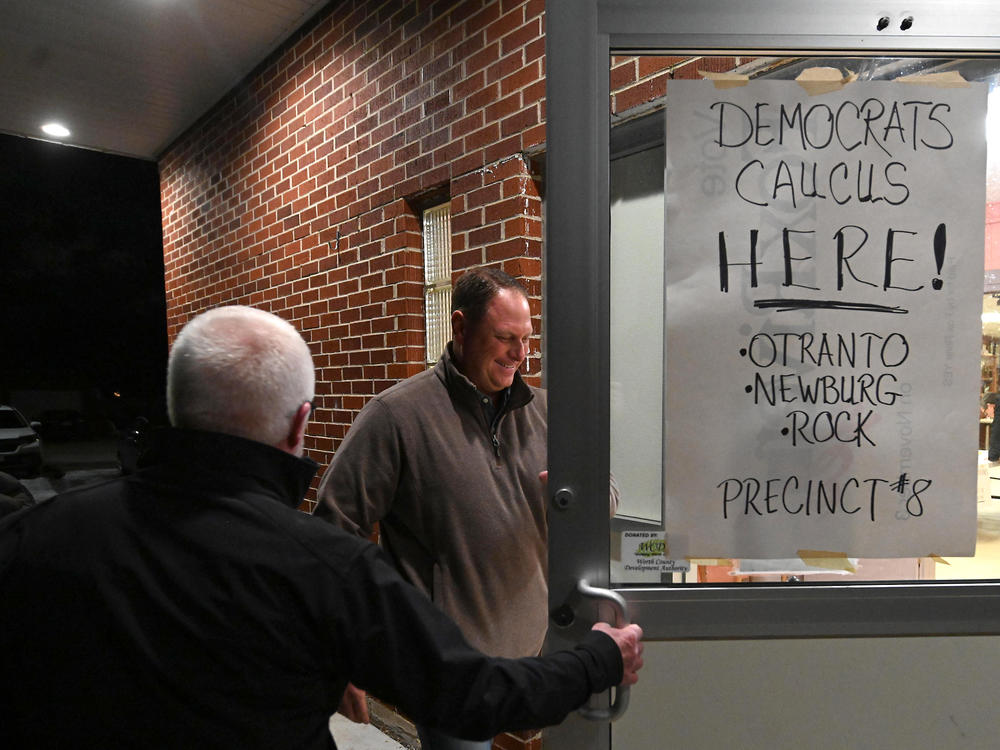 DEMOCRATS
CAUCUS
HERE!
•OTRANTO
•NEWBURG
•ROCK
PRECINCT #8
DONATED BY:
WCDA
Worth County
Development Authority